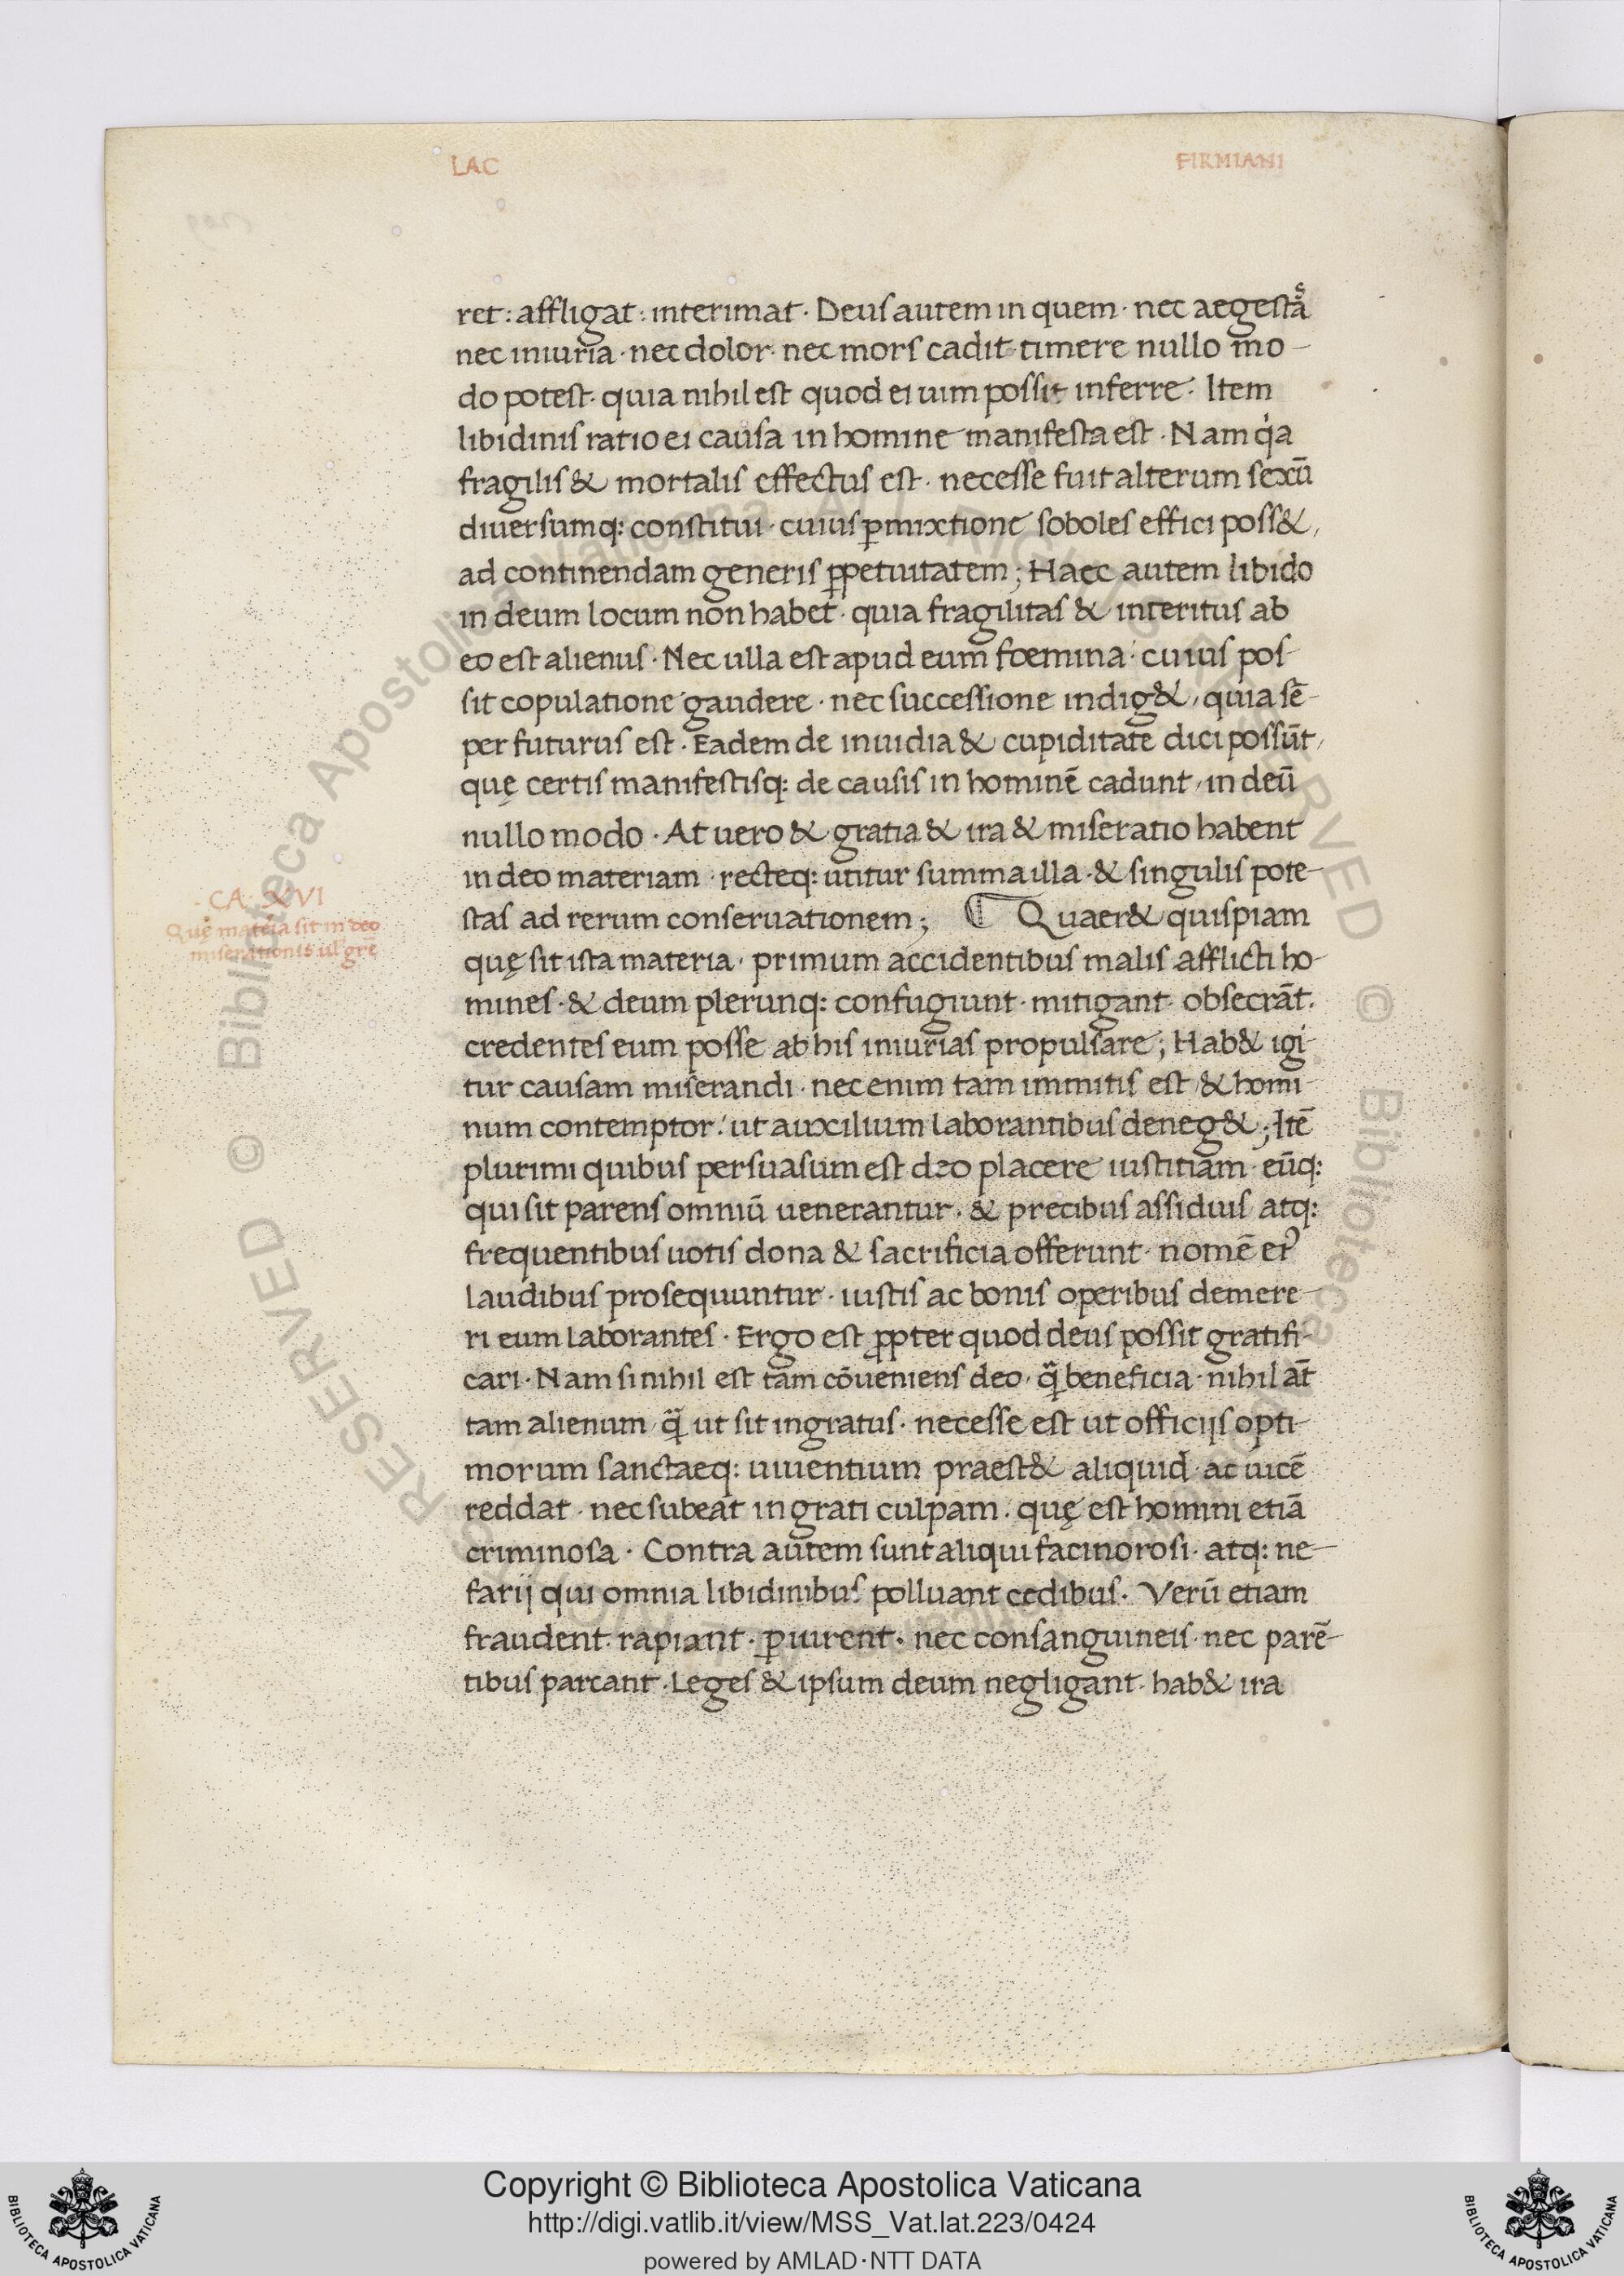 LAC FIRMIANI
ret: affligat: interimat· Deus autem in quem· nec aegestaˢ
nec iniuria· nec dolor· nec mors cadit· timere nullo mo-
do potest· quia nihil est quod ei uim possit inferre· Item
libidinis ratio ei causa in homine manifesta est· Nam qͥa
fragilis & mortalis effectus est· necesse fuit alterum sexū
diuersumq: constitui· cuius ꝑmixtione soboles effici poss&,
ad continendam generis ꝑpetuitatem; Haec autem libido
in deum locum non habet· quia fragilitas & interitus ab
eo est alienus· Nec ulla est apud eum foemina· cuius pos-
sit copulatione gaudere· nec successione indig&, quia sē-
per futurus est· Eadem de inuidia & cupiditate dici possūt,
quę certis manifestisq: de causis in hominē cadunt, in deū
nullo modo· At uero & gratia & ira & miseratio habent
in deo materiam· recteq: utitur summa illa· & singulis pote-
CA. XVI
Quę mateͬia sit in deo
miserationis ul' gre
stas ad rerum conseruationem; ¶ Quaer& quispiam
quę sit ista materia· primum accidentibus malis afflicti ho-
mines· & deum plerunq: confugiunt· mitigant· obsecrāt.
credentes eum posse ab his iniurias propulsare; Hab& igi-
tur causam miserandi· nec enim tam immitis est & homi-
num contemptor: ut auxilium laborantibus deneg&; Itē
plurimi quibus persuasum est deo placere iustitiam· eūq:
qui sit parens omniū uenerantur· & precibus assiduis atq:
frequentibus uotis dona & sacrificia offerunt· nomē eiꝰ
laudibus prosequuntur· iustis ac bonis operibus demere-
ri eum laborantes· Ergo est ꝓpter quod deus possit gratifi-
cari· Nam si nihil est tam cōueniens deo· qᷓ beneficia· nihil aт̄
tam alienum qᷓ ut sit ingratus· necesse est ut officijs opti-
morum sanctaeq: uiuentium praest& aliquid· ac uicē
reddat· nec subeat ingrati culpam· quę est homini etiā
criminosa· Contra autem sunt aliqui facinorosi· atq: ne-
farij qui omnia libidinibus polluant cedibus· Verū etiam
fraudent· rapiant· ꝑiurent· nec consanguineis· nec parē-
tibus parcant· Leges & ipsum deum negligant· hab& ira
Copyright © Biblioteca Apostolica Vaticana
http://digi.vatlib.it/view/MSS_Vat.lat.223/0424
powered by AMLAD·NTT DATA
BIBLIOTECA APOSTOLICA VATICANA
BIBLIOTECA APOSTOLICA VATICANA